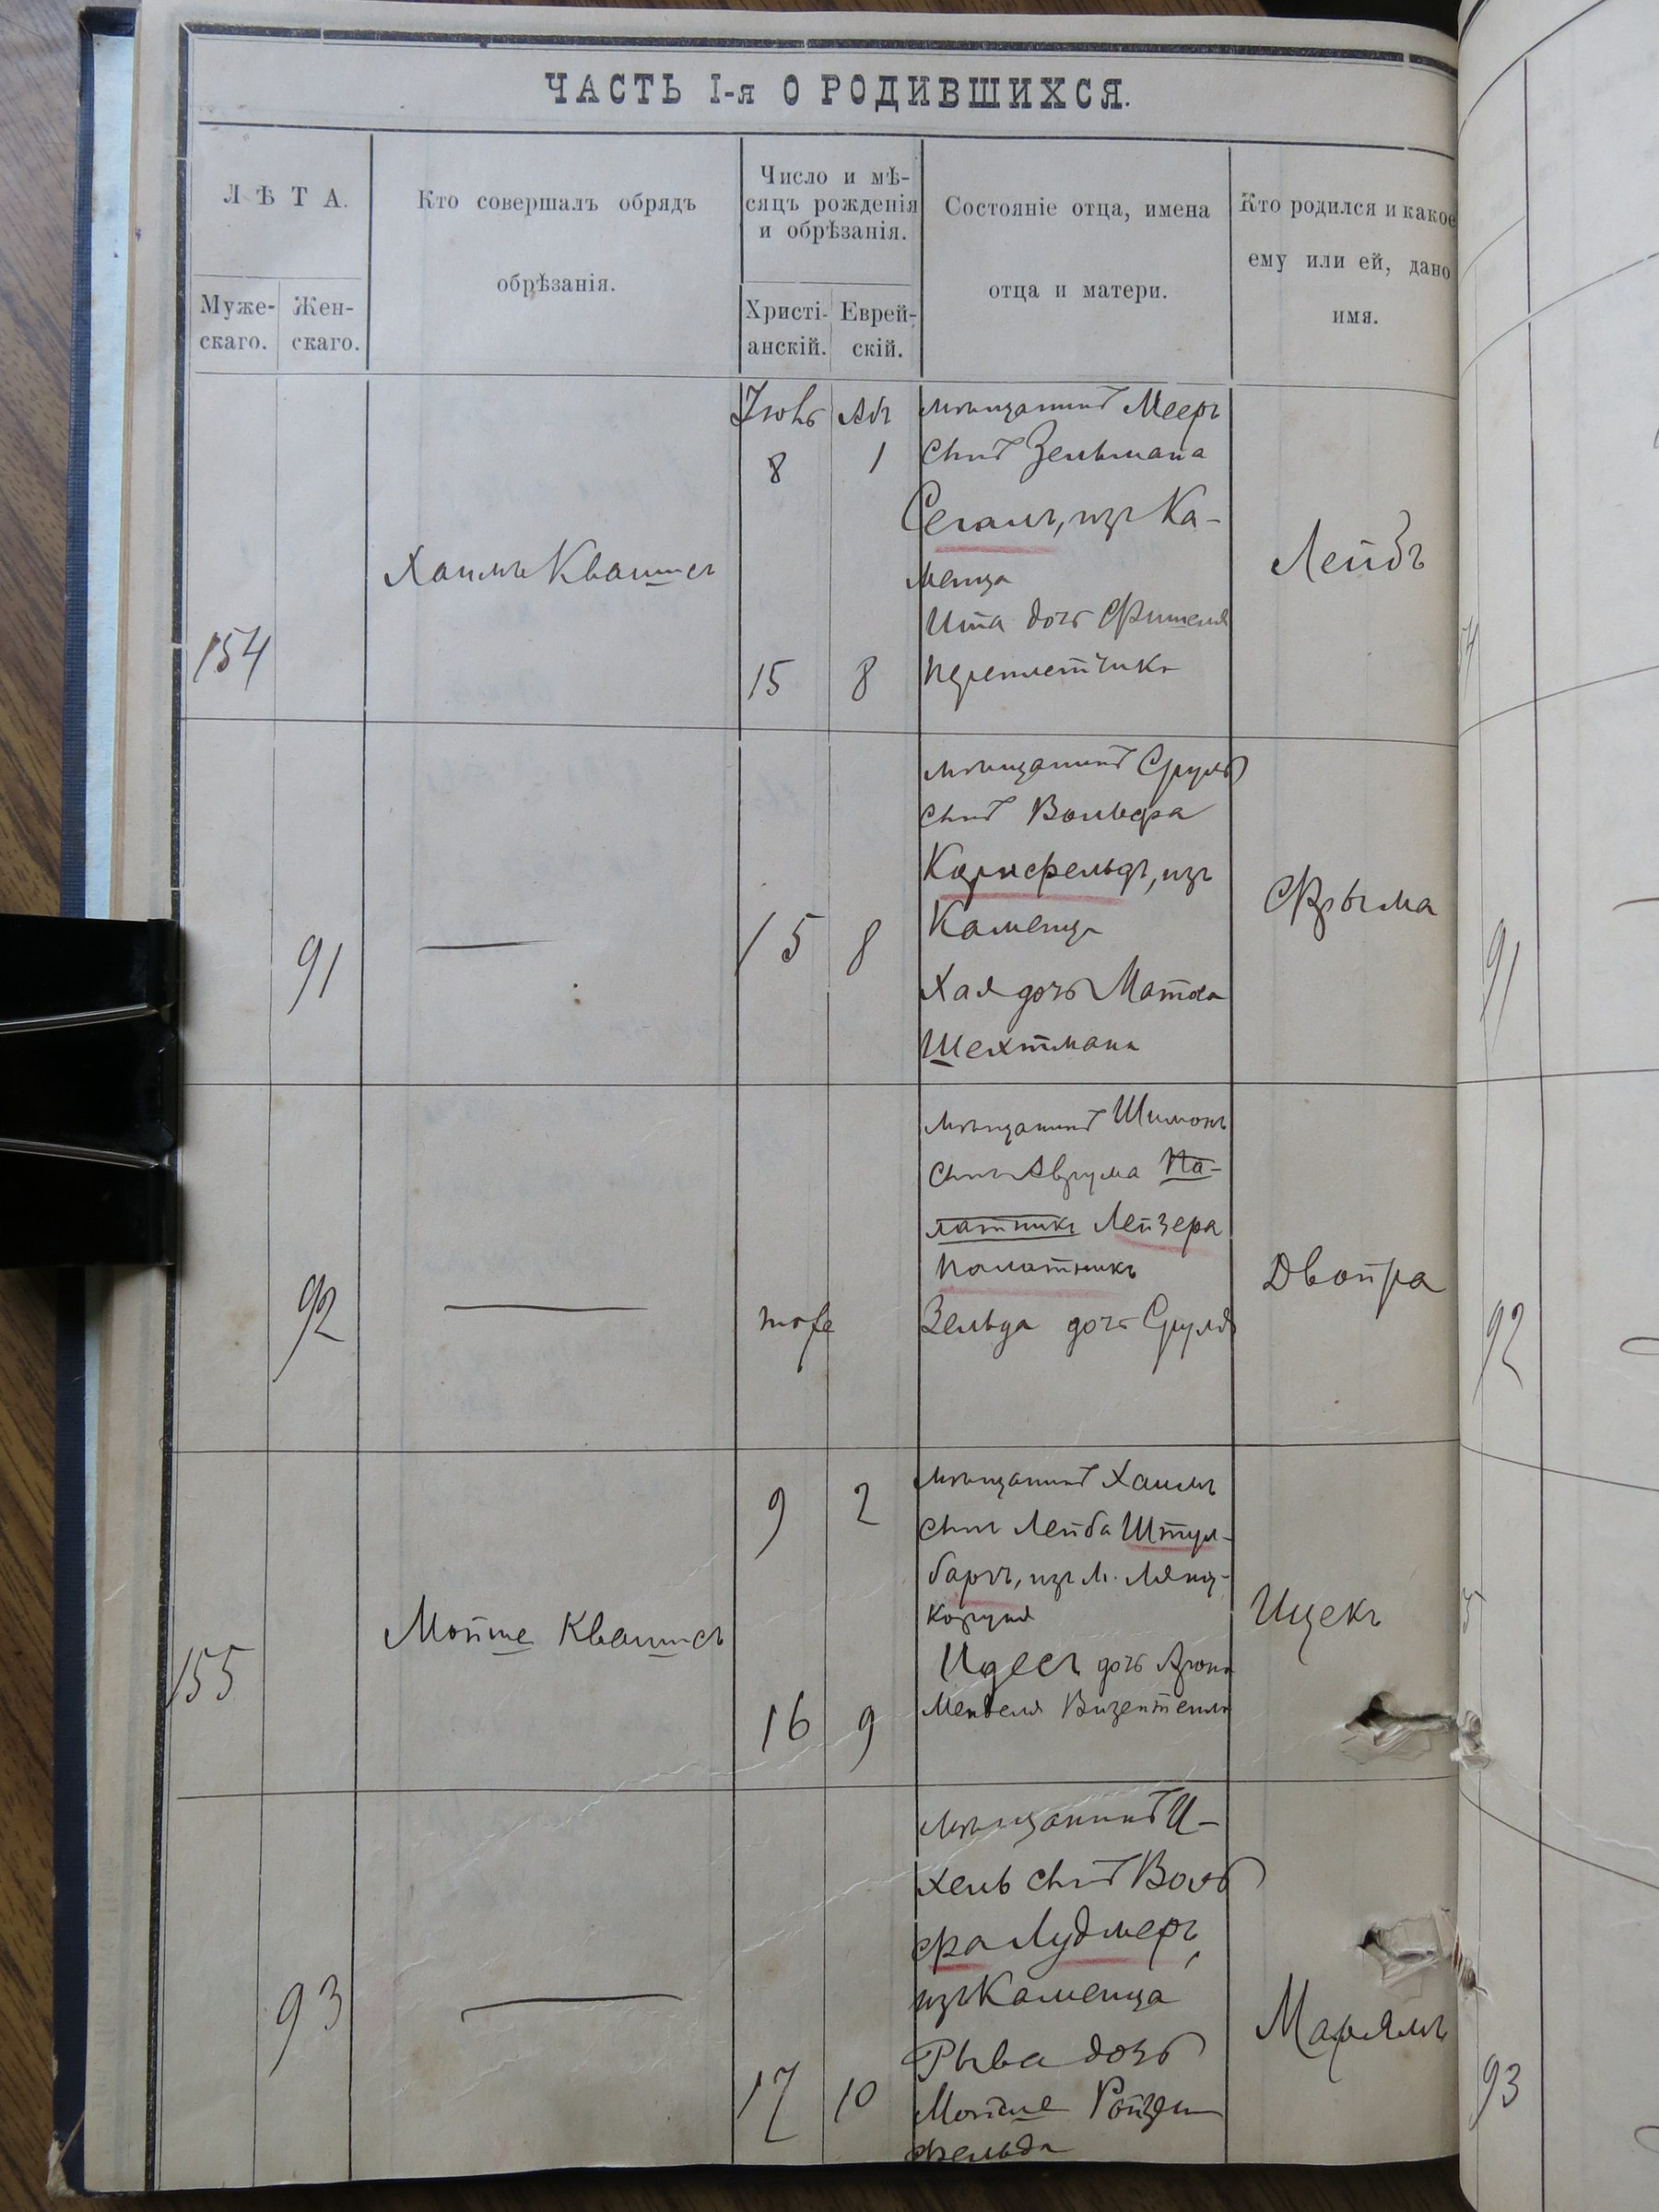 ЧАСТЬ I-я О РОДИВШИХСЯ.
ЛѢТА.
Муже-
скаго.
Жен-
скаго.
Кто совершалъ обрядъ
обрѣзанія.
Число и мѣ-
сяцъ рожденія
и обрѣзанія.
Христі-
анскій.
Еврей-
скій.
Состояніе отца, имена
отца и матери.
Кто родился и какое
ему или ей, дано
имя.
154
Хаимъ Квашисъ
Іюль Абъ
8 1
15 8
мѣщанинъ Мееръ
сынъ Зельмана
Сегалъ, изъ Ка-
менца
Ита дочь Фишеля
Переплетчикъ
Лейбъ
91
15 8
мѣщанинъ Сруль
сынъ Вольфа
Корнфельдъ, изъ
Каменца
Хая дочь Матеа
Шехтмана
Фрыма
92
тоже
мѣщанинъ Шимонъ
сынъ Аврума Па-
латникъ Лейзера
Палатникъ
Зельда дочь Сруля
Двойра
155
Мойше Квашисъ
9 2
16 9
мѣщанинъ Хаимъ
сынъ Лейба Штул-
баргъ, изъ м. Лянц-
коруня
Идесъ дочь Арона
Менделя Визентеля
Ицекъ
93
17 10
мѣщанинъ И-
хель сынъ Воль
фа Лудмеръ,
изъ Каменца
Рыва дочь
Мойше Ройзен
фельда
Марьямъ
91
92
93